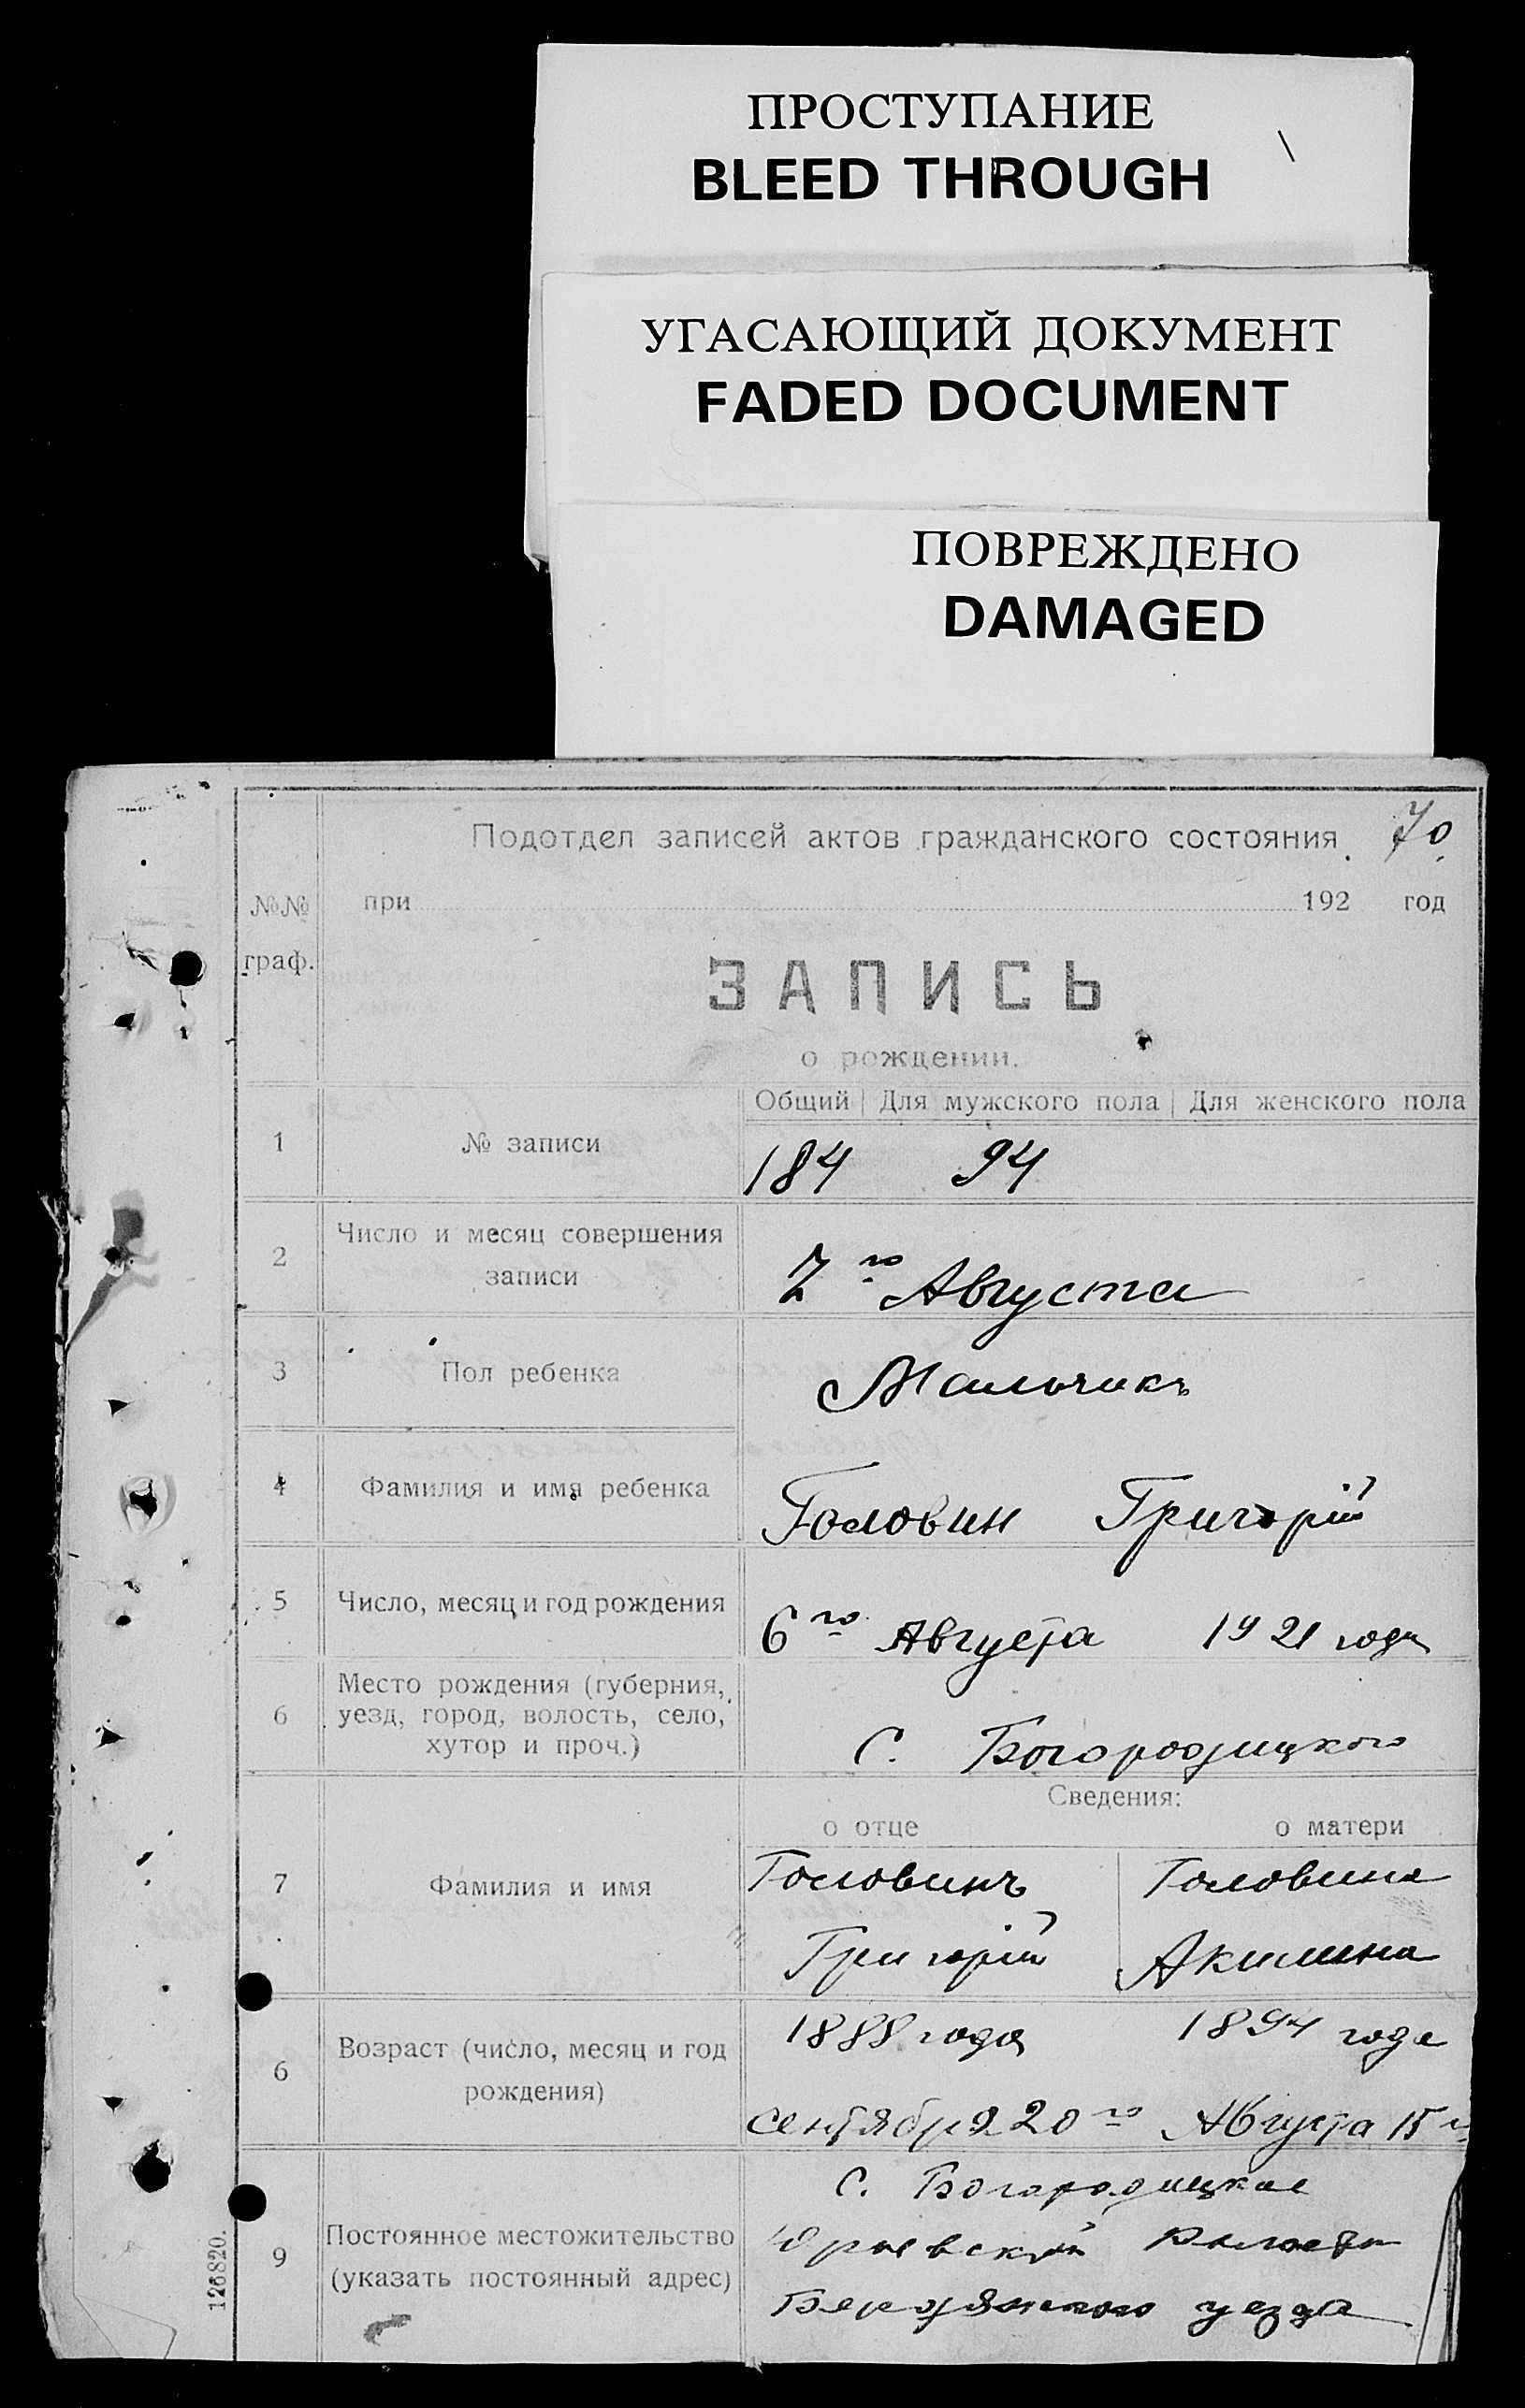 ПРОСТУПАНИЕ
BLEED THROUGH
УГАСАЮЩИЙ ДОКУМЕНТ
FADED DOCUMENT
ПОВРЕЖДЕНО
DAMAGED
70
Подотдел записей актов гражданского состояния
№№ граф.
при 192 год
ЗАПИСЬ
о рождении.
Общий Для мужского пола Для женского пола
1 № записи 184 94
2 Число и месяц совершения
записи
7го Августа
3 Пол ребенка Мальчикъ
4 Фамилия и имя ребенка Головин Григорій
5 Число, месяц и год рождения 6го Августа 1921 года
6 Место рождения (губерния,
уезд, город, волость, село,
хутор и проч.)
С. Богородицкого
Сведения:
о отце о матери
7 Фамилия и имя
Головинъ Головина
Григорій Акилина
6 Возраст (число, месяц и год
рождения)
1888 года 1894 года
сентября 20го Августа 15
9 Постоянное местожительство
(указать постоянный адрес)
С. Богородицкое
Юрьевской Волости
Бердянского уезда
126820.